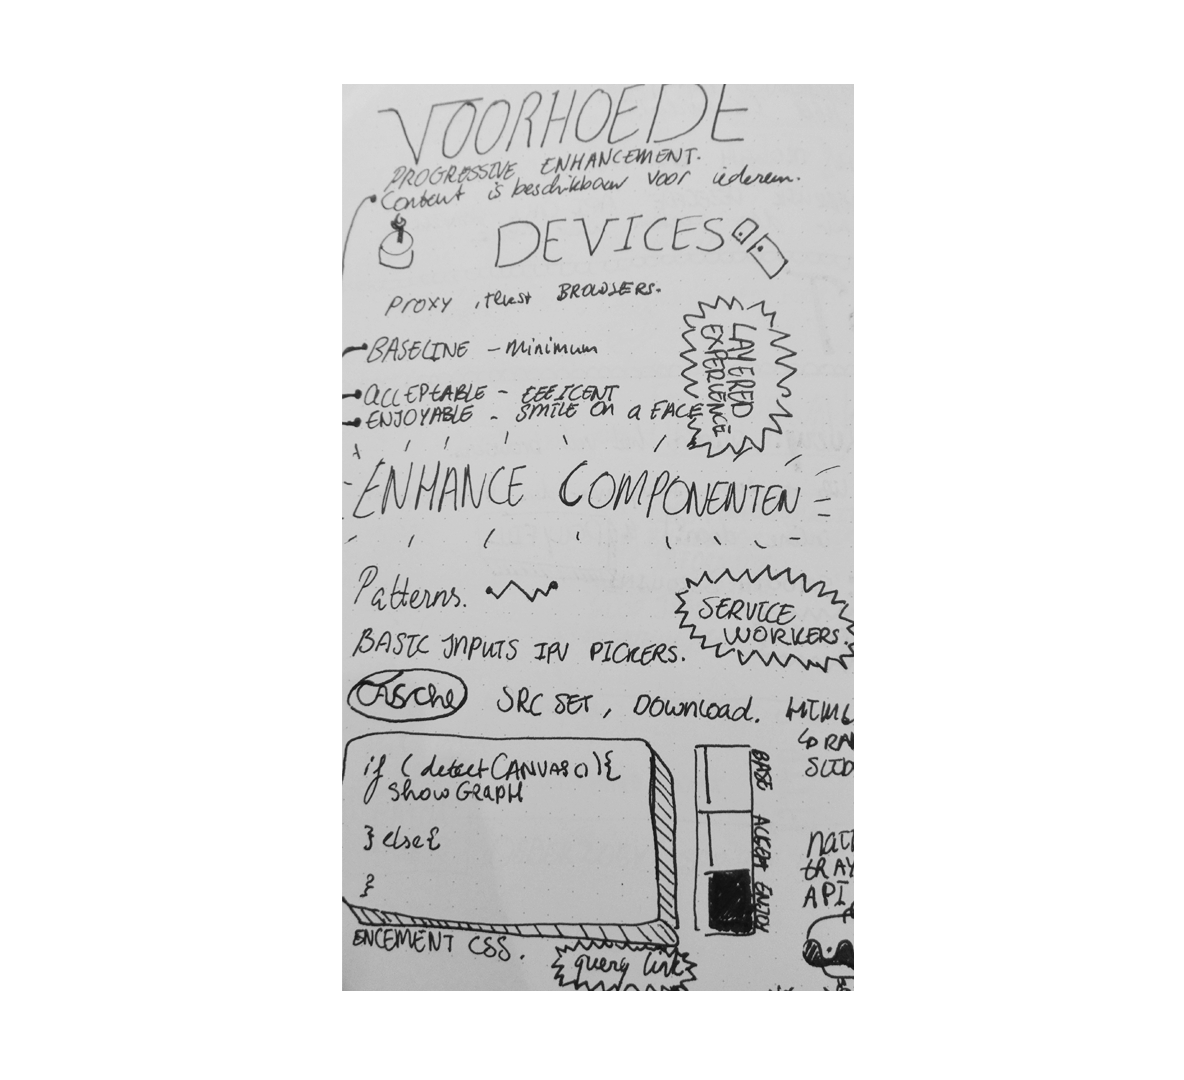 VOORHOEDE
PROGRESSIVE ENHANCEMENT.
Content is beschikbaar voor iedereen.
DEVICES
PROXY, BROWSERS.
BASELINE - Minimum
LAYERED
EXPERIENCE
ACCEPTABLE - EFFICENT
ENJOYABLE - SMILE ON a FACE
ENHANCE COMPONENTEN
Patterns.
SERVICE
WORKERS.
BASIC INPUTS IPV PICKERS.
SRC SET, DOWNLOAD. HTML
RA
SLID
if (detectCANVAS()){
ShowGRAPH
} else {
}
BASE
ACCEPT
ENJOY
NATI
tRAY
API
ENCEMENT CSS.
query link